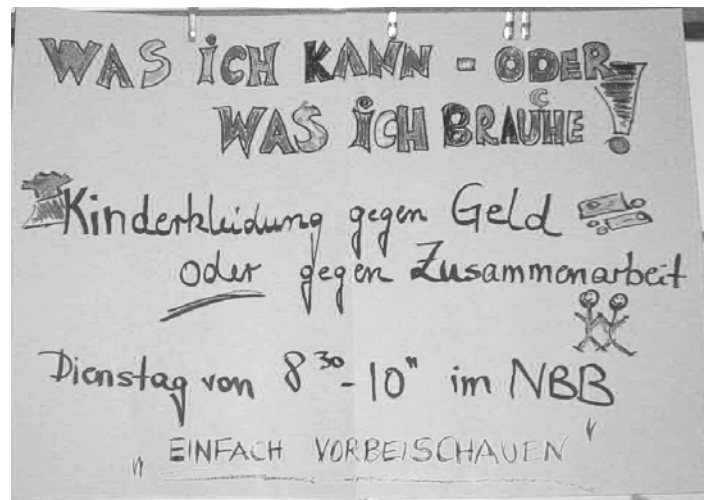 WAS iCH KANN - ODER
WAS iCH BRAUCHE!
Kinderkleidung gegen Geld
oder gegen Zusammenarbeit
Dienstag von 8³⁰-10" im NBB
"EINFACH VORBEISCHAUEN"